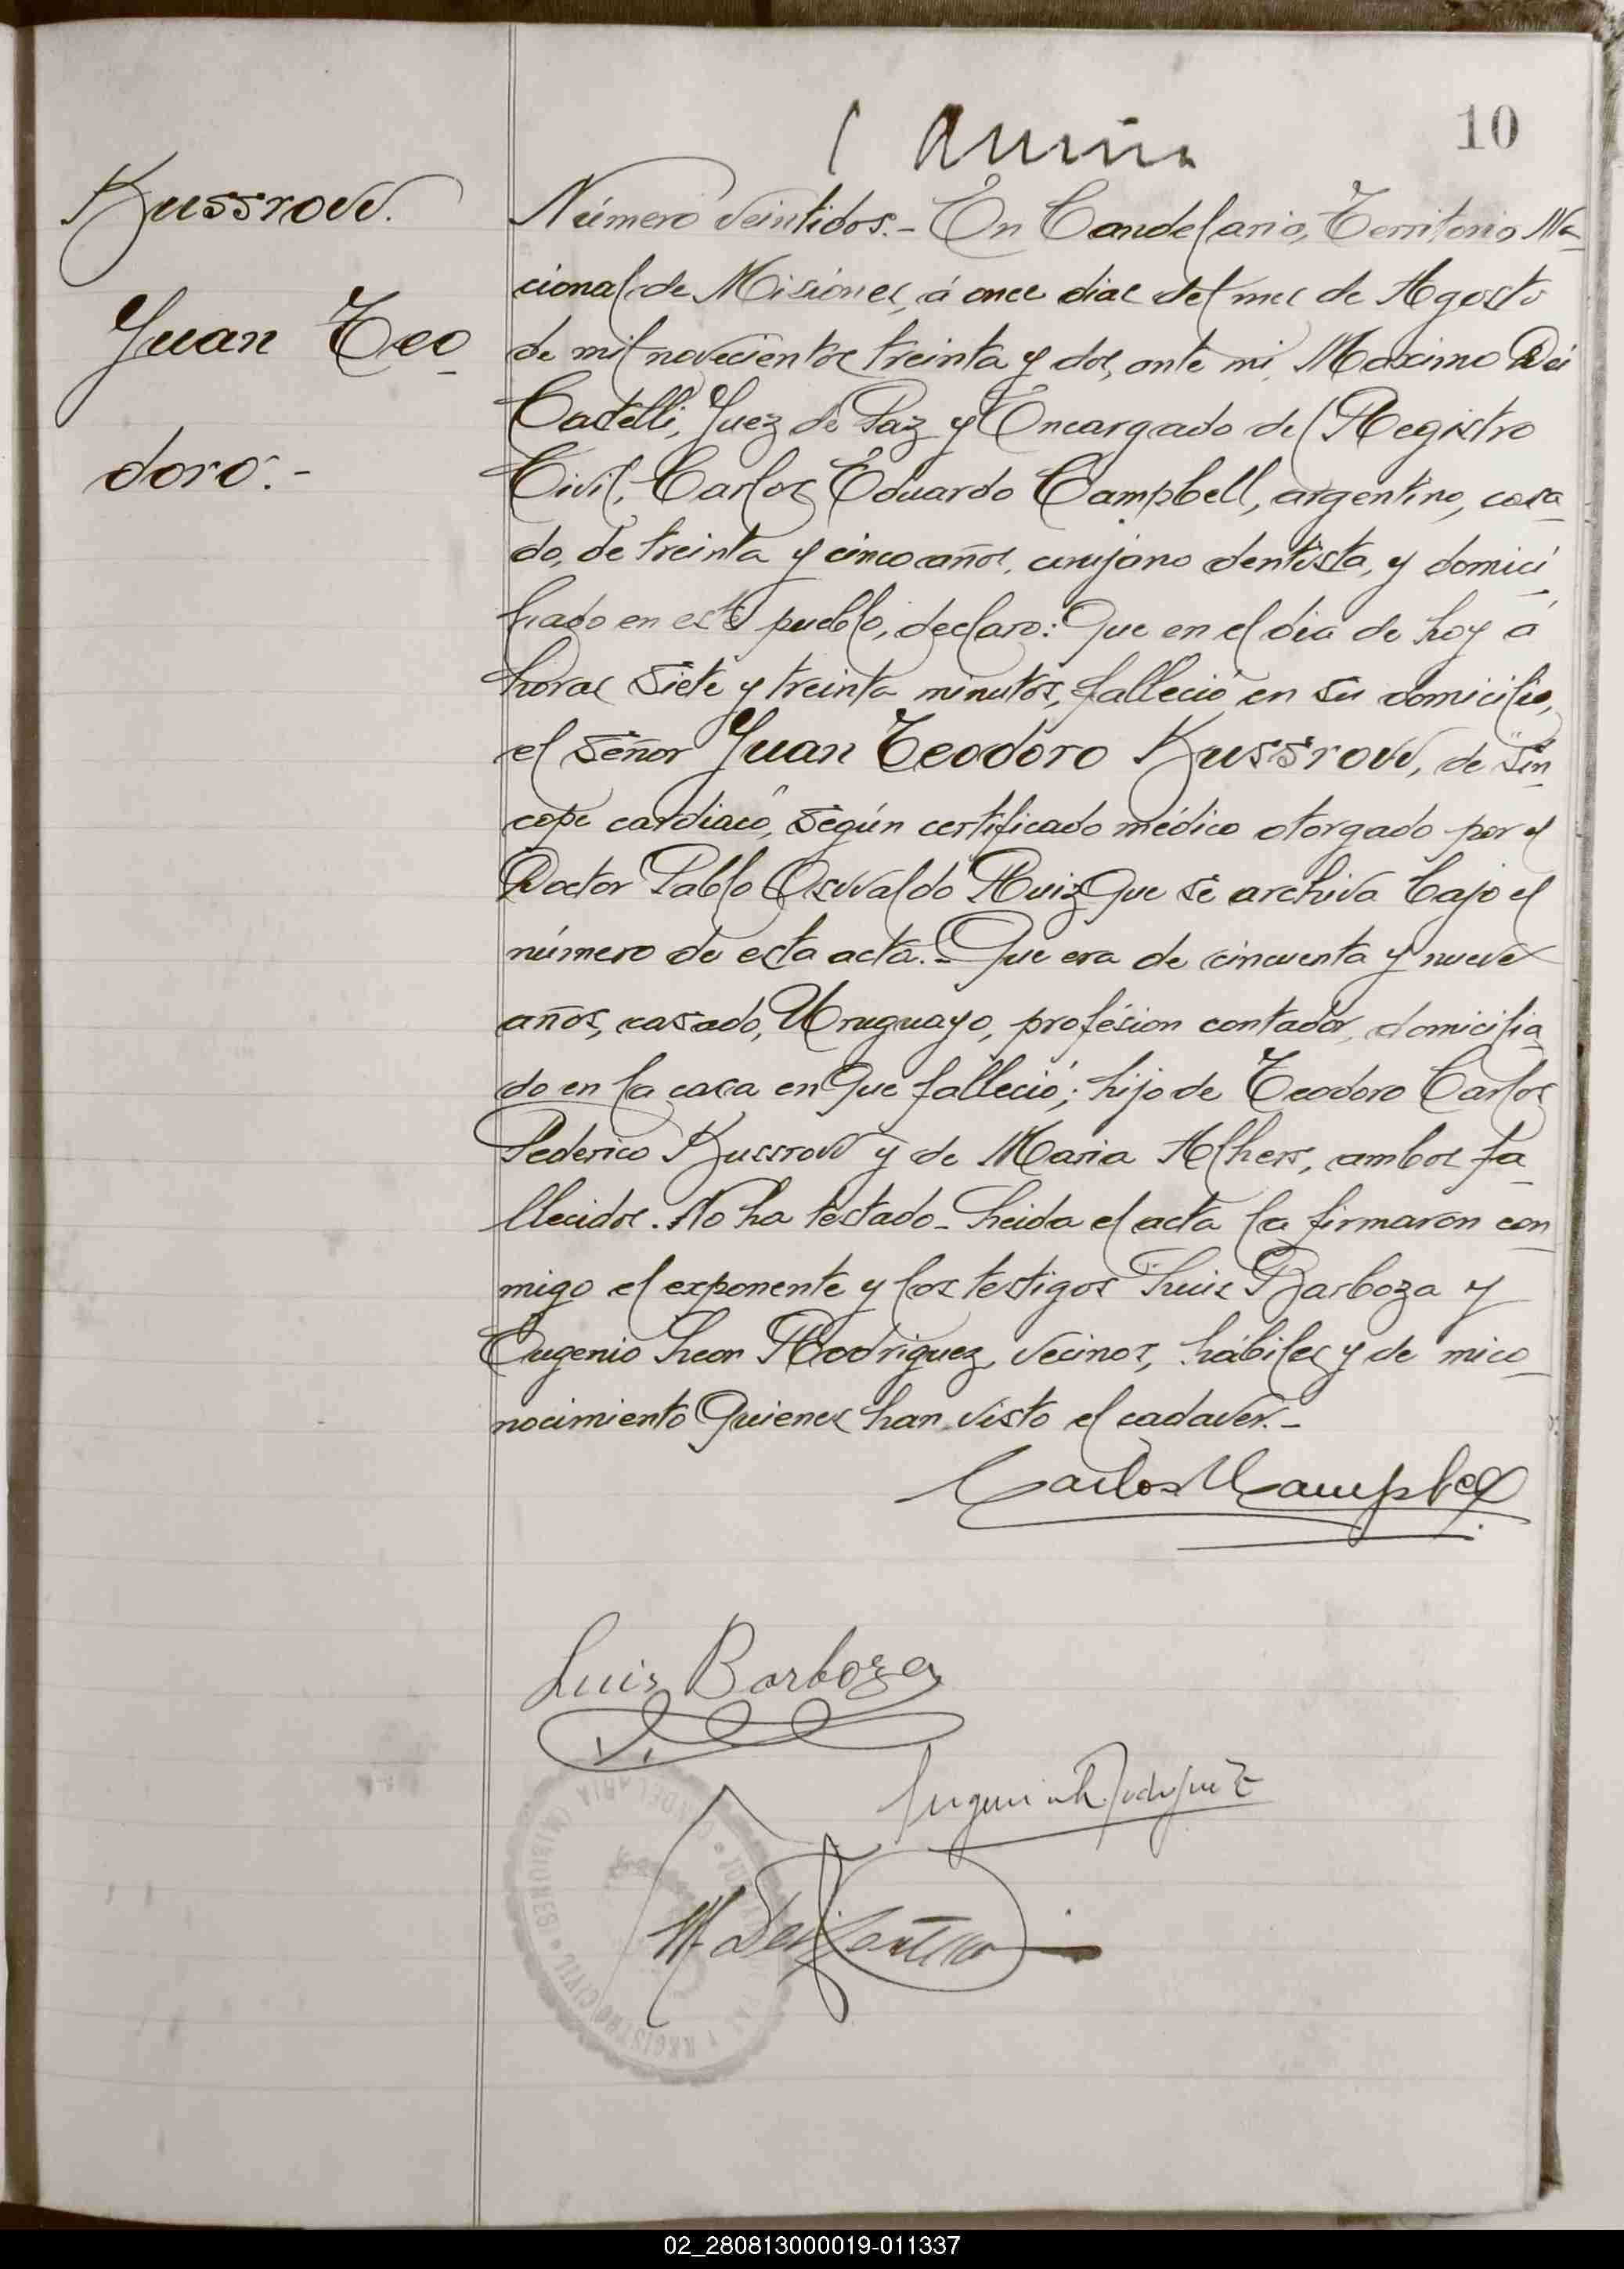 10
Kussrow.
Juan Teo_
doro.-
Número veintidos.- En Candelaria, Territorio Na_
cional de Misiones, á once dias del mes de Agosto
de mil novecientos treinta y dos, ante mi, Maximo Dei
Castelli, Juez de Paz y Encargado del Registro
Civil, Carlos Eduardo Campbell, argentino, casa_
do, de treinta y cinco años, cirujano dentista, y domici_
liado en este pueblo, declaro: Que en el dia de hoy á
horas siete y treinta minutos, falleció en su domicilio,
el señor Juan Teodoro Kussrow, de "sin_
cope cardiaco", según certificado médico otorgado por el
Doctor Pablo Oswaldo Ruiz que se archiva bajo el
número de esta acta.- Que era de cincuenta y nueve
años, casado, Uruguayo, profesion contador, domicilia_
do en la casa en que falleció; hijo de Teodoro Carlos
Federico Kussrow y de Maria Alhers, ambos fa_
llecidos. No ha testado_ Leida el acta la firmaron con_
migo el exponente y los testigos Luis Barboza y
Eugenio Leon Rodriguez, vecinos, hábiles y de mi co_
nocimiento quienes han visto el cadaver.-
Carlos Campbell
Luis Barboza
Eugenio L. Rodriguez
M. Dei Castelli
REGISTRO CIVIL CANDELARIA (MISIONES)
02_280813000019-011337